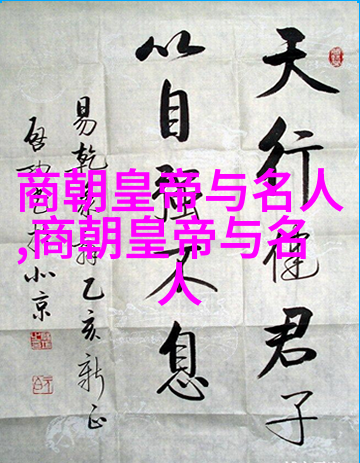 商朝皇帝与名人
,商朝皇帝与名
人
天行健君子
以自强不息
易乾象辞乙亥新正
启功书于北京